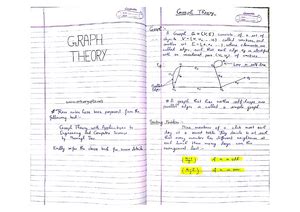 GRAPH
THEORY
* These notes have been prepared from the
following text :-
Graph Theory with Applications to
Engineering and Computer Science
by Narsingh Deo
Kindly refer the above text for more details.
Graph Theory
Graph :-
A Graph G = (V, E) consists of a set of
objects V = {v₁, v₂, ...} called vertices, and
another set E = {e₁, e₂, ...}, whose elements are
called edges, such that each edge eₖ is
with an unordered pair (vᵢ, vⱼ) of vertices.
Eg
* A graph that has neither self-loops nor
edges is called a simple graph.
Seating Problem :-
Nine members of a club meet each
day at a round table. They decide to sit such
that every member has different neighbours at
each lunch. How many days can this
arrangement last?